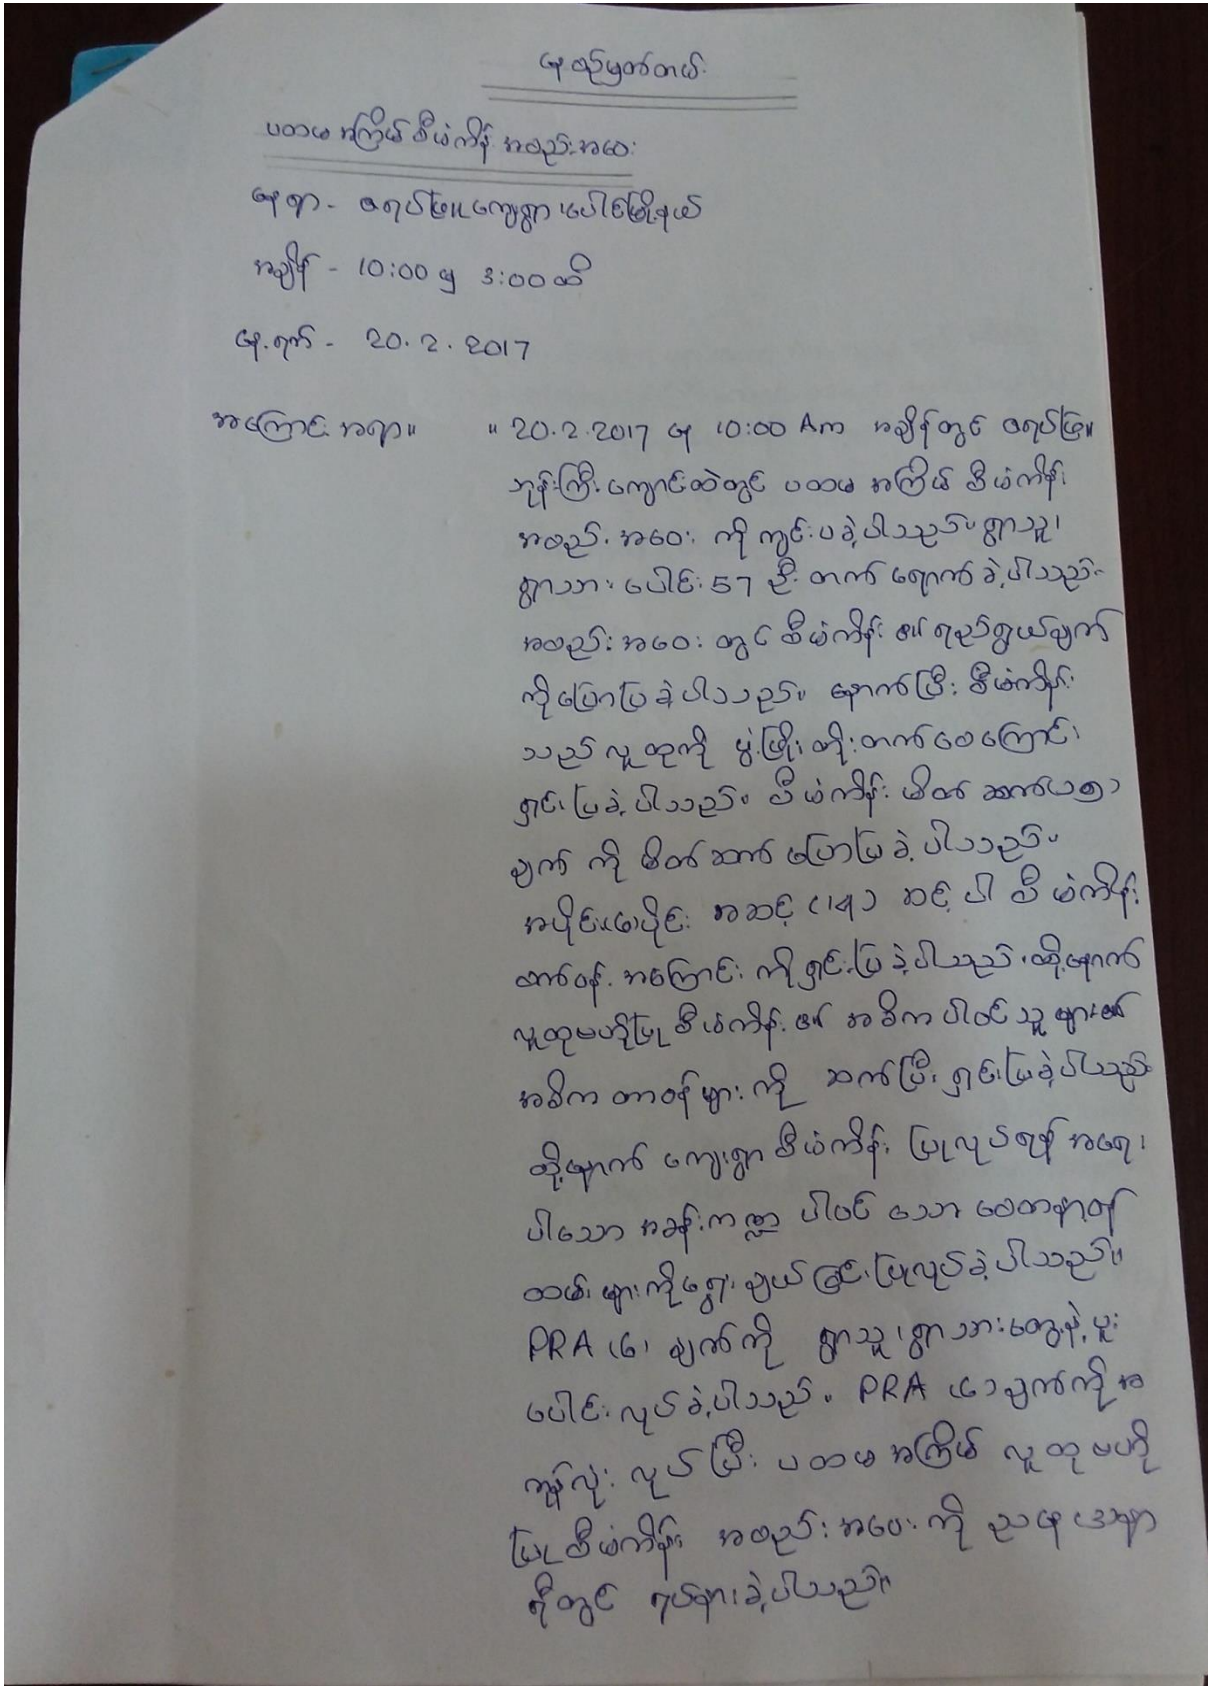 နေ့စဉ်မှတ်တမ်း
ပထမအကြိမ် စီမံကိန်း အစည်းအဝေး
နေရာ - ဇရပ်ဖြူကျေးရွာ၊ ပေါင်မြို့နယ်
အချိန် - 10:00 မှ 3:00 ထိ
နေ့ရက် - 20.2.2017
အကြောင်းအရာ။ ။ 20.2.2017 နေ့ 10:00 Am အချိန်တွင် ဇရပ်ဖြူ။
ဘုန်းကြီးကျောင်းထဲတွင် ပထမ အကြိမ် စီမံကိန်း
အစည်းအဝေး ကို ကျင်းပခဲ့ပါသည်။ ရွာသူ၊
ရွာသား ပေါင်း 57 ဦး တက်ရောက်ခဲ့ပါသည်။
အစည်းအဝေး တွင် စီမံကိန်း ၏ ရည်ရွယ်ချက်
ကိုပြောပြခဲ့ပါသည်။ နောက်ပြီး စီမံကိန်း
သည် လူထုကို ဖွံ့ဖြိုးတိုးတက်စေကြောင်း
ရှင်းပြခဲ့ပါသည်။ စီမံကိန်း မိတ်ဆက်
ချက် ကို မိတ်ဆက် ပြောပြခဲ့ပါသည်။
အဆင့် (14) ဆင့် ပါ စီမံကိန်း
စက်ဝန်း အကြောင်း ကို ရှင်းပြခဲ့ပါသည်။ ထို့နောက်
လူထုဗဟိုပြု စီမံကိန်း ၏ အဓိက ပါဝင်သူ များ၏
အဓိက တာဝန်များ ကို ဆက်ပြီး ရှင်းပြခဲ့ပါသည်။
ထို့နောက် ကျေးရွာ စီမံကိန်း ပြုလုပ်ရန် အရေး
ပါသော အခန်းကဏ္ဍ ပါဝင် သော စေတနာ့ဝန်
ထမ်း များကို ရွေးချယ်ခြင်း ပြုလုပ်ခဲ့ပါသည်။
PRA (6) ချက်ကို ရွာသူ၊ ရွာသားတွေနဲ့ ပူး
ပေါင်း လုပ်ခဲ့ပါသည်။ PRA (6) ချက်ကို အ
ကုန်လုံး လုပ်ပြီး ပထမ အကြိမ် လူထု ဗဟို
ပြု စီမံကိန်း အစည်းအဝေး ကို ညနေ ၃နာ
ရီတွင် ရပ်နားခဲ့ပါသည်။